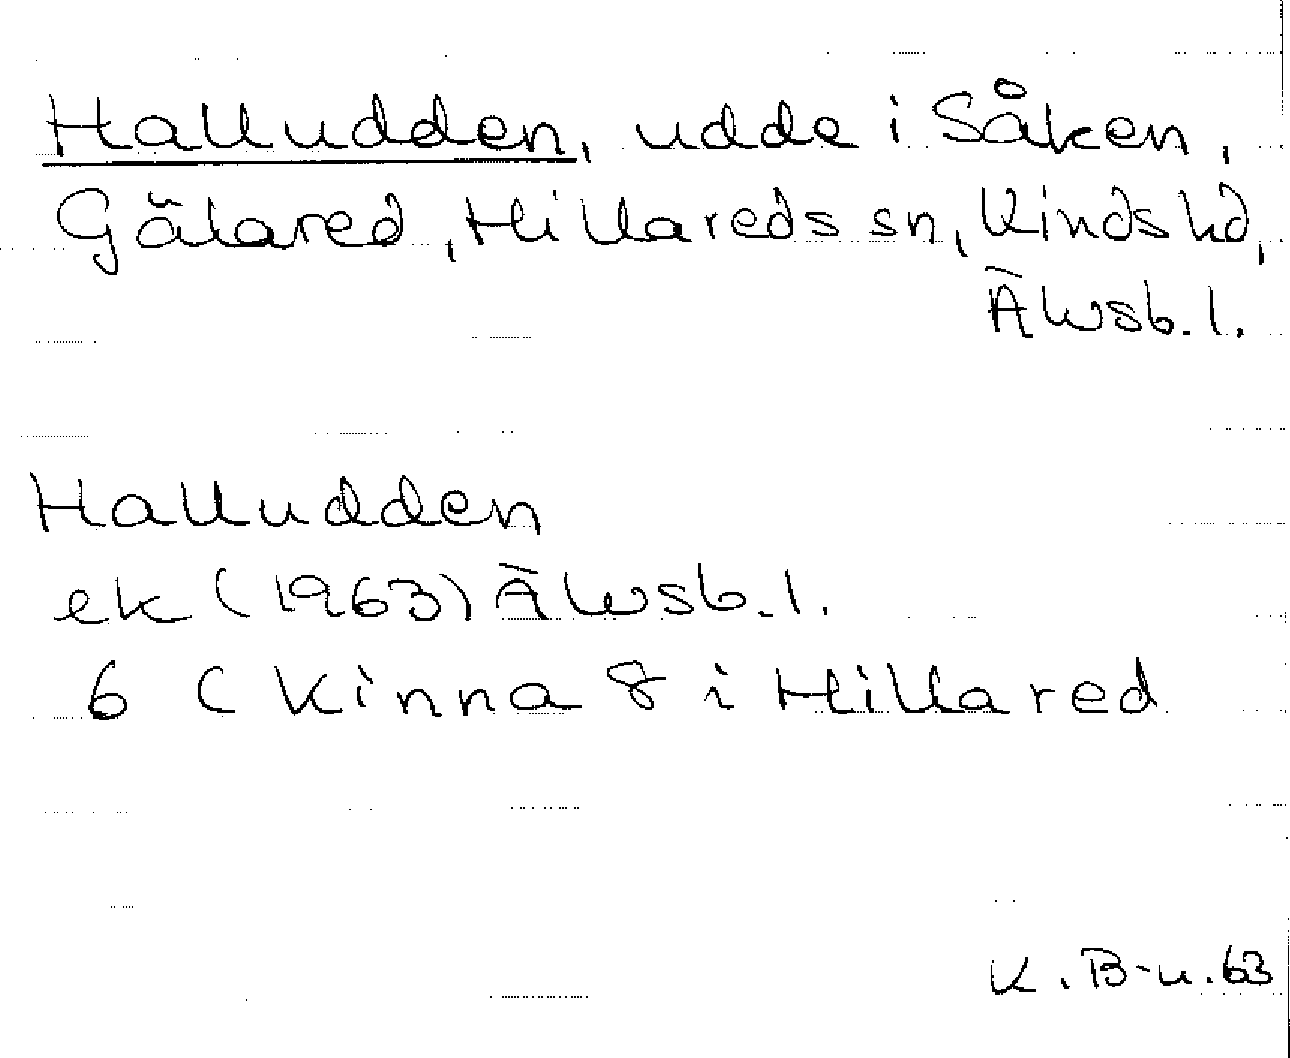 Halludden, udde i Såken,
Gälared, Hillareds sn, Kinds hd,
Älvsb. l.
Halludden
ek (1963) Älvsb. l.
6 ( Kinna 8 i Hillared
K. B-n. 63